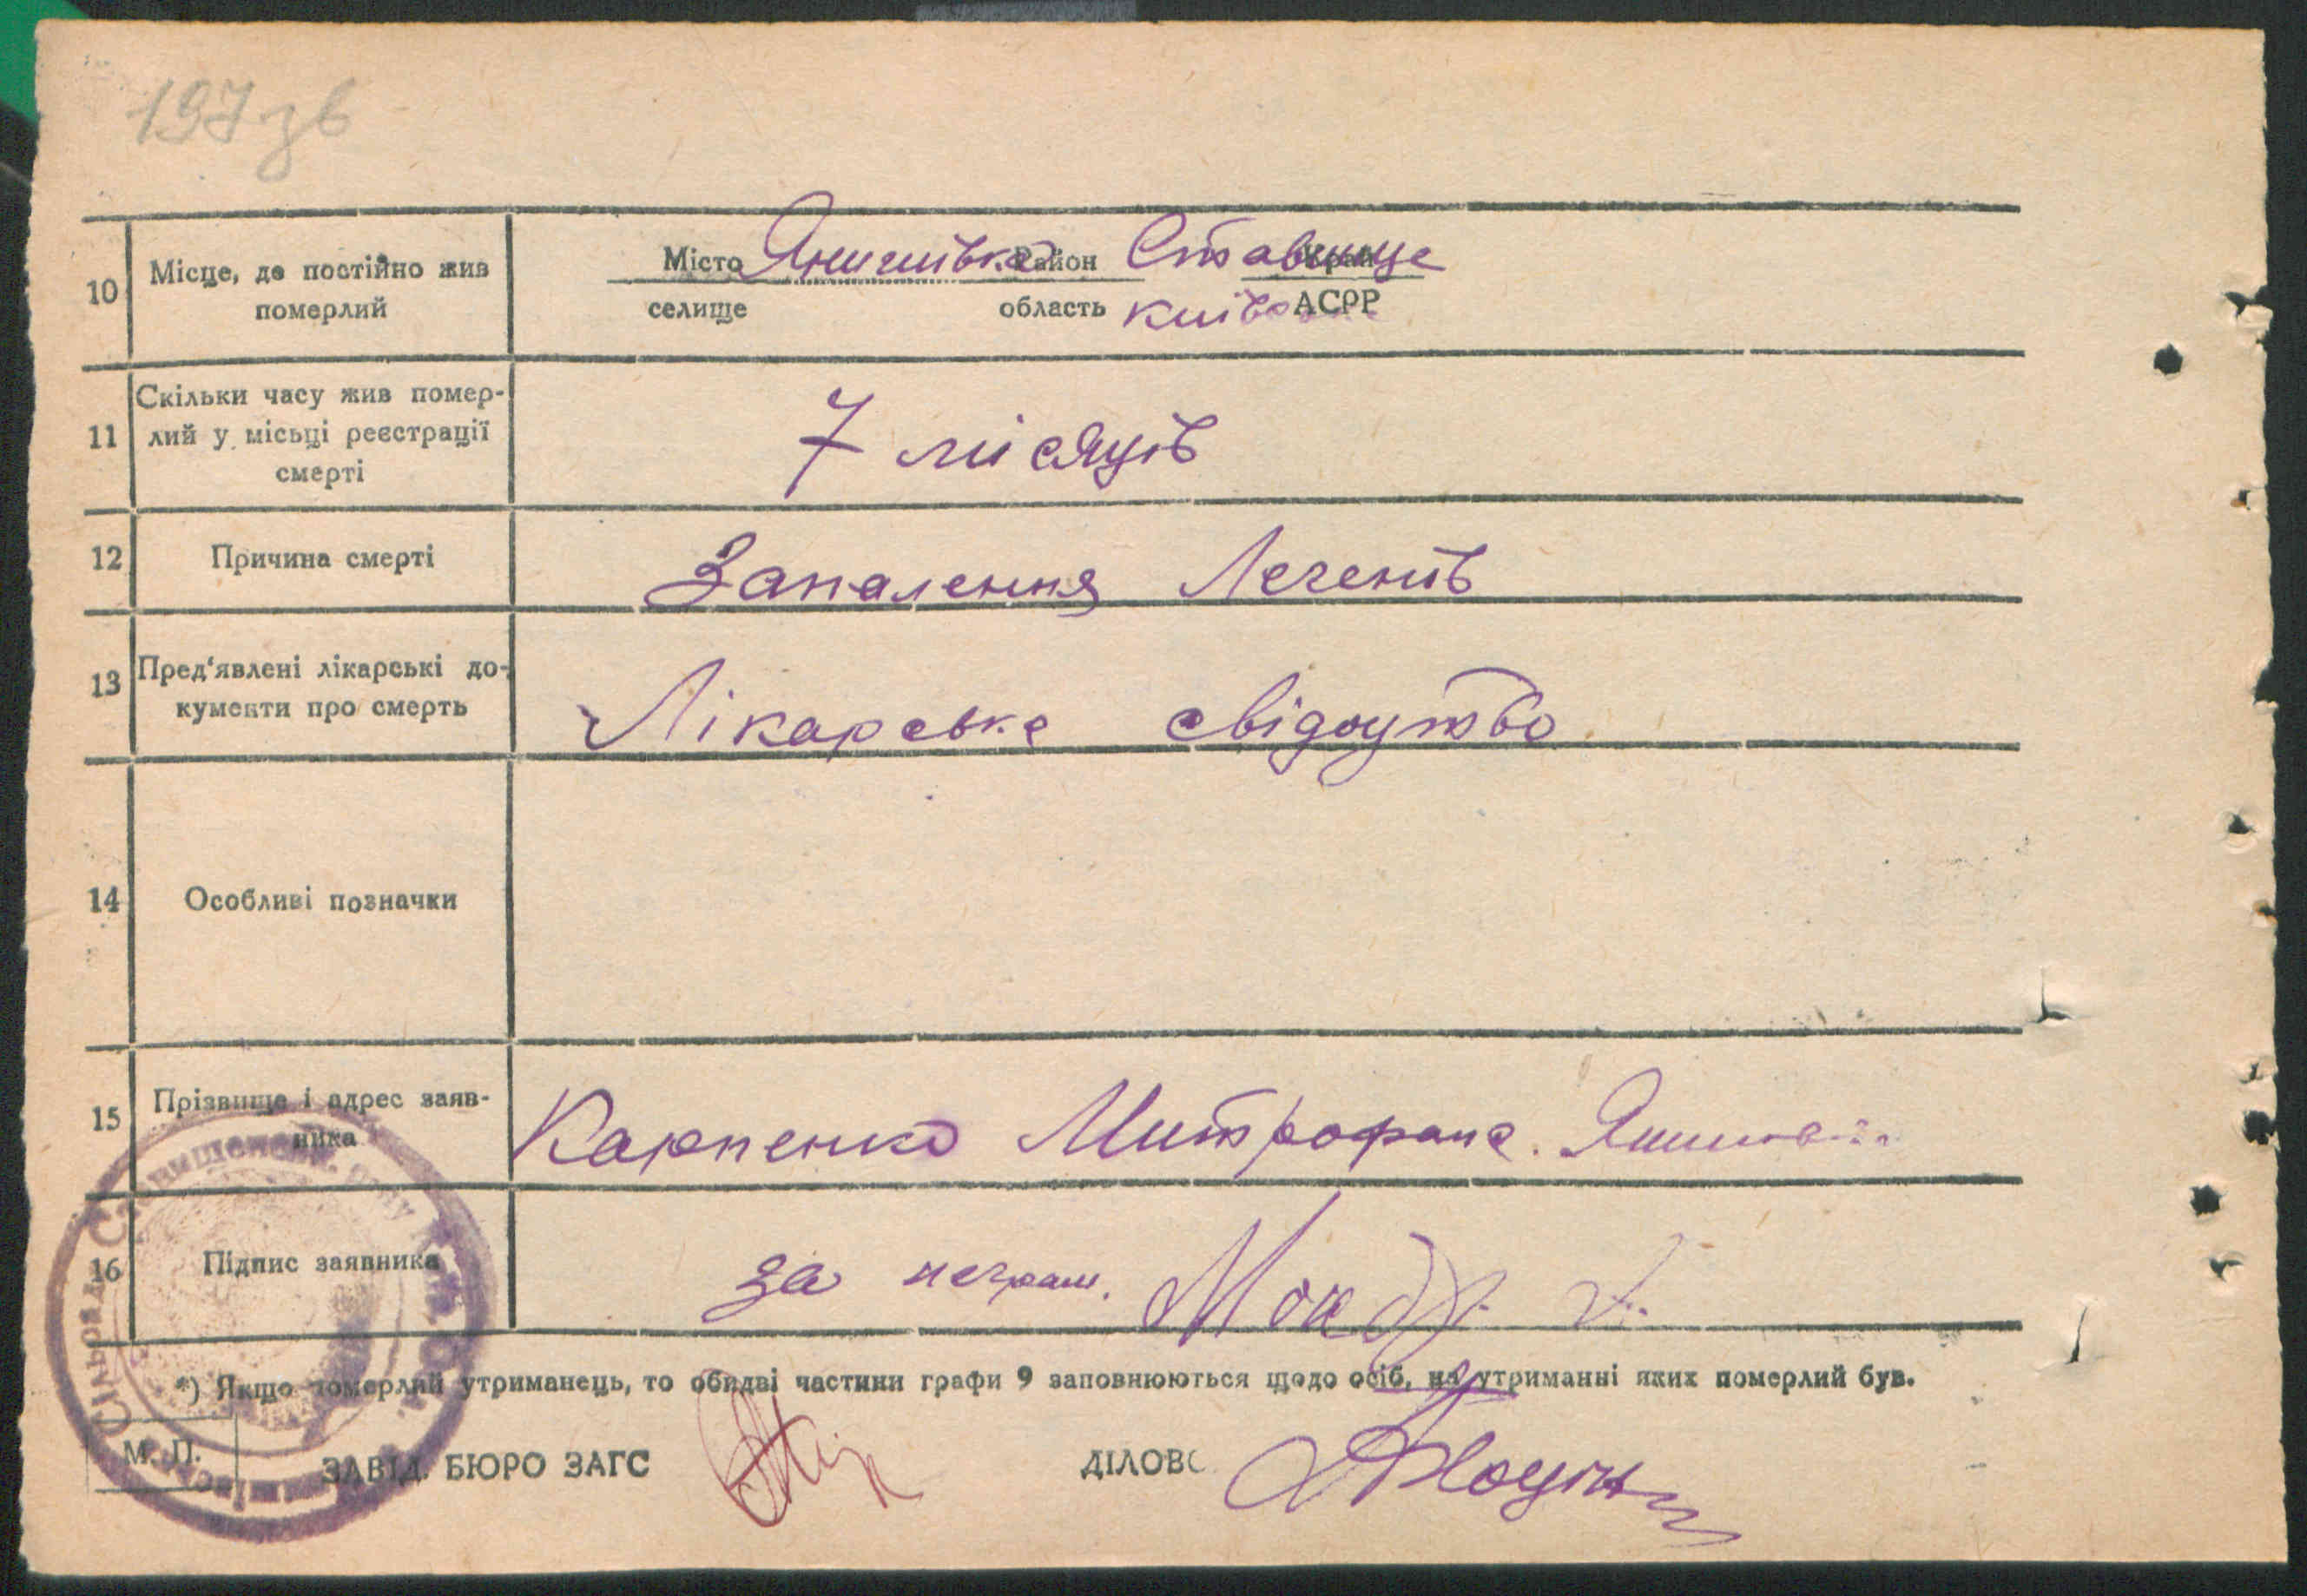 197 зв
10 Місце, де постійно жив померлий
Місто Янишівка Район Ставище Край
селище область Київ АСРР
11 Скільки часу жив помер-
лий у місьці реєстрації
смерті
7 місяців
12 Причина смерті
Запалення Легенів
13 Пред'явлені лікарські до-
кументи про смерть
Лікарське свідоцтво
14 Особливі позначки
15 Прізвище і адрес заяв-
ника
Карпенко Митрофана
16 Підпис заявника
за неграм.
*) Якщо померлий утриманець, то обидві частини графи 9 заповнюються щодо осіб, на утриманні яких померлий був.
М. П.
ЗАВІД. БЮРО ЗАГС
ДІЛОВ
Сільрада Ставищенськ. р-ну